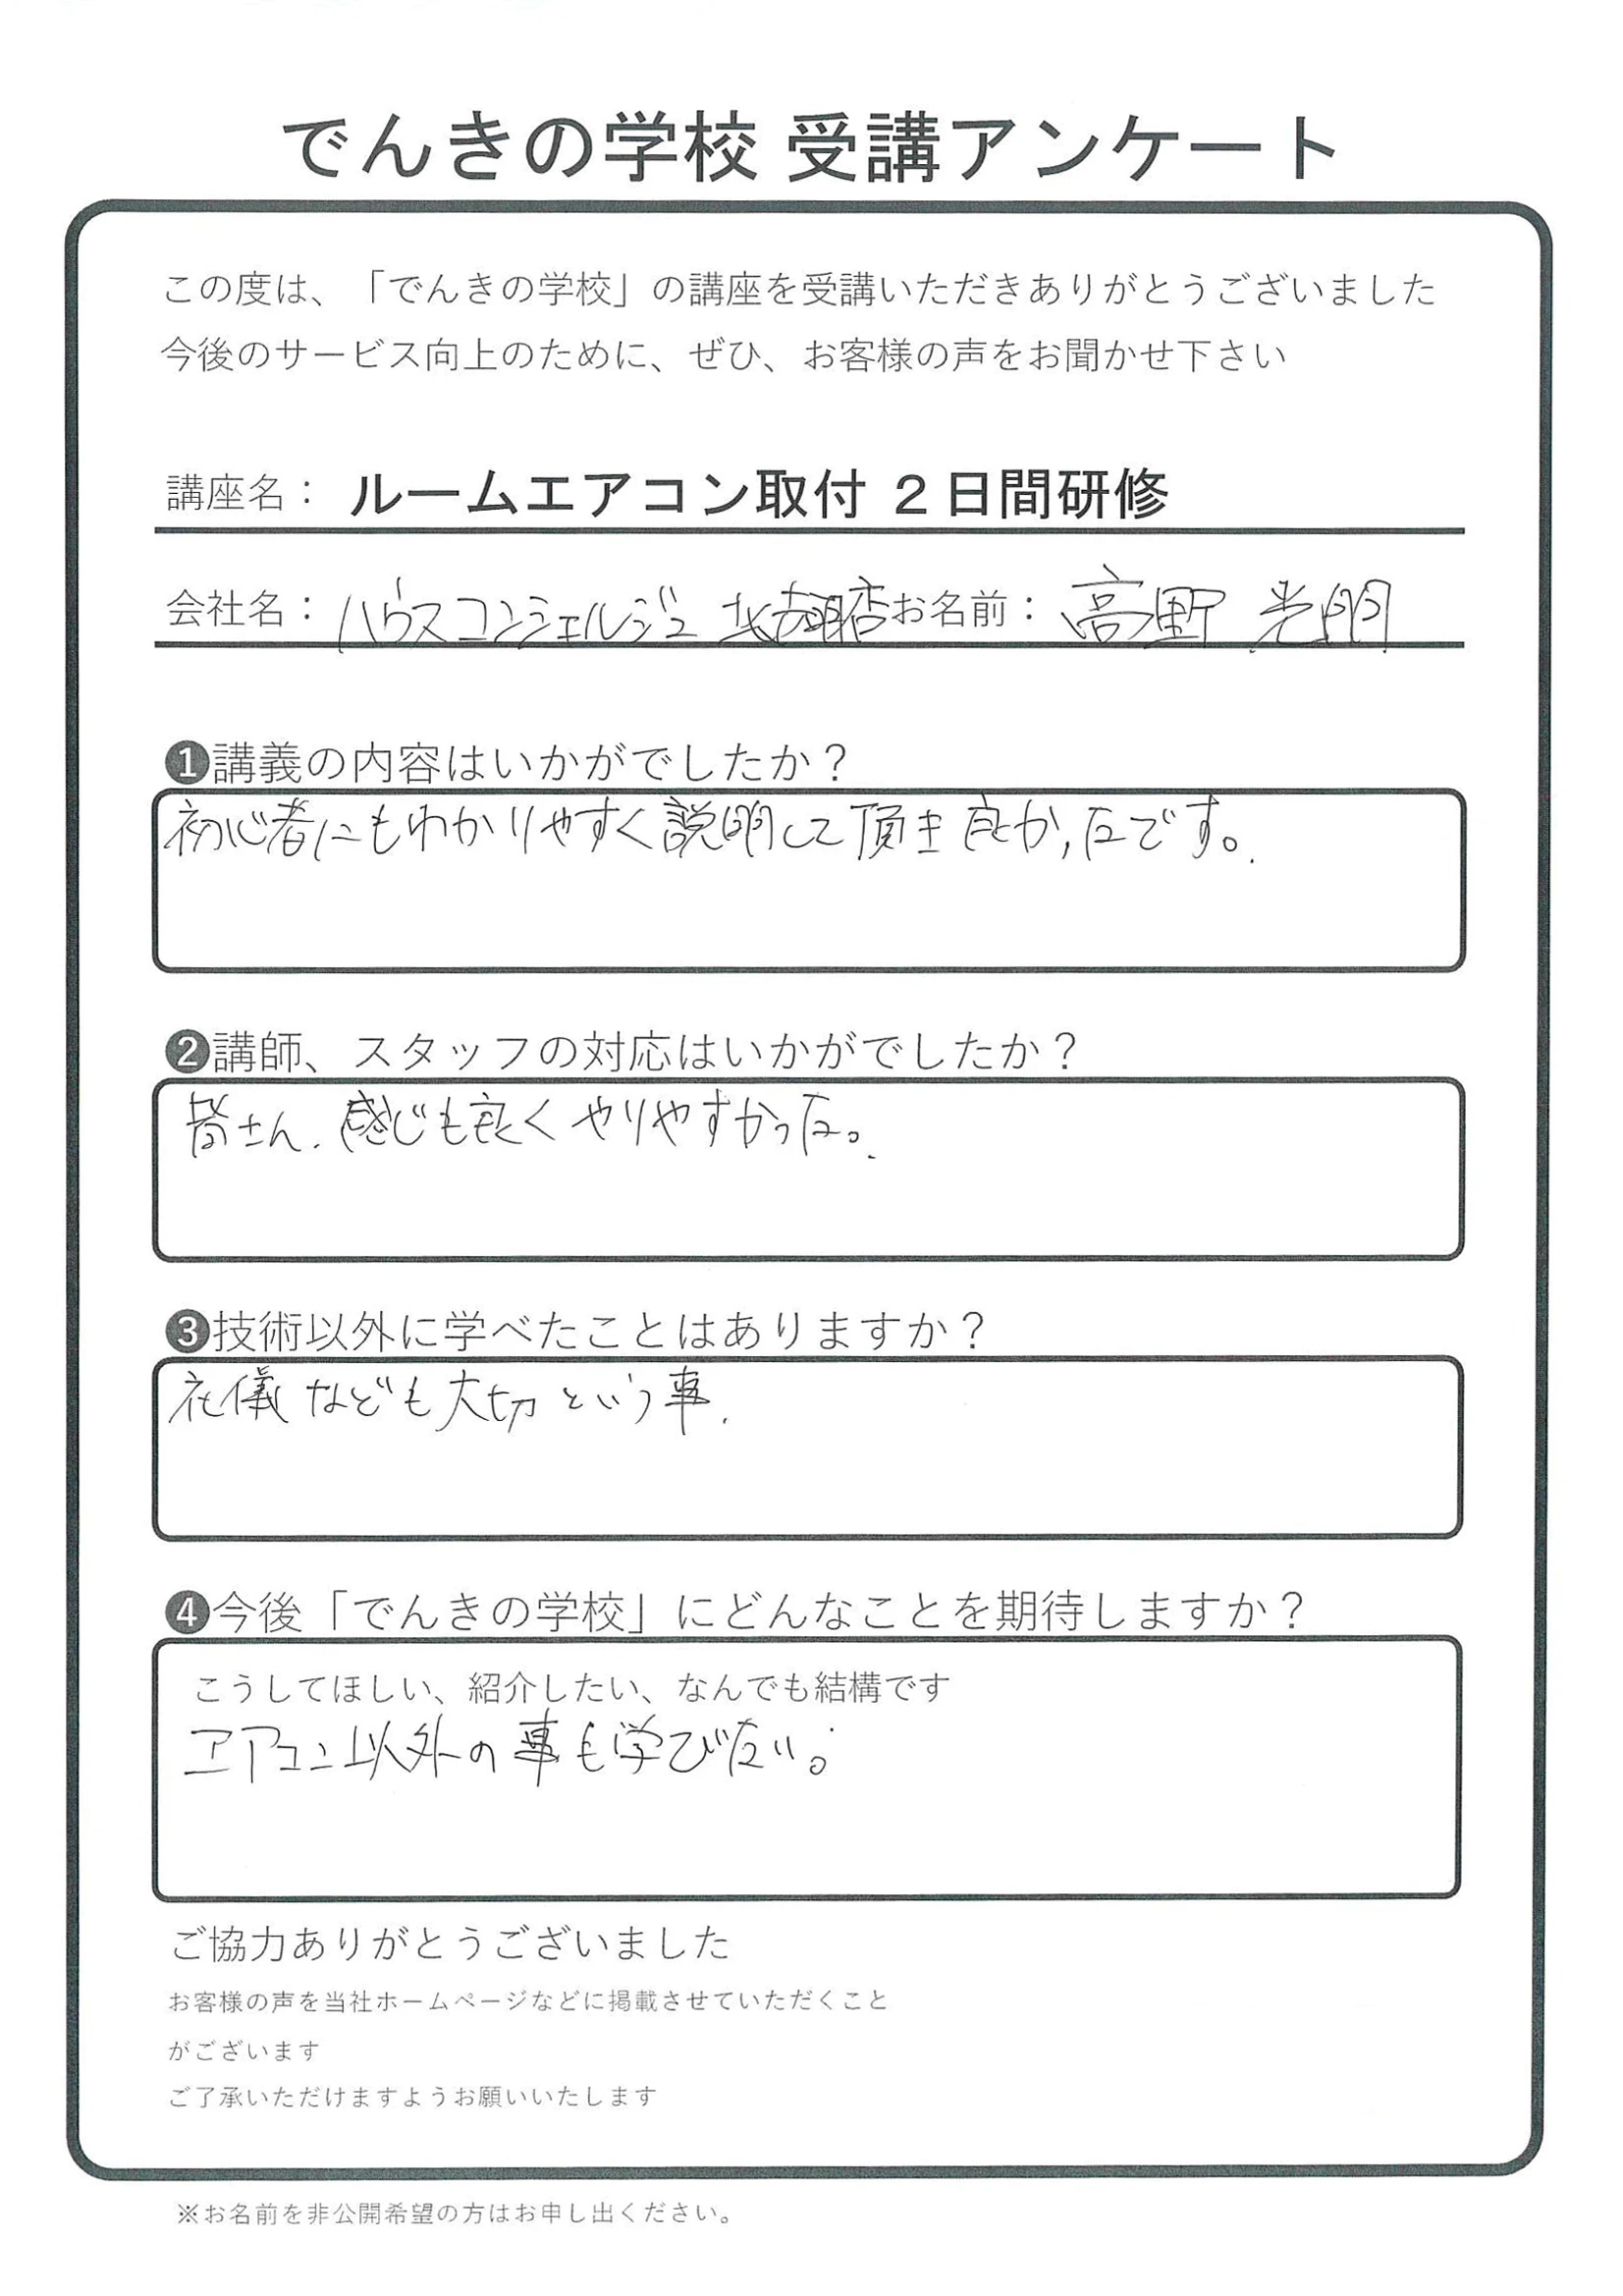 でんきの学校 受講アンケート
この度は、「でんきの学校」の講座を受講いただきありがとうございました
今後のサービス向上のために、ぜひ、お客様の声をお聞かせ下さい
講座名： ルームエアコン取付 2日間研修
会社名：ハウスコンシェルジュ 店お名前：高野 光明
❶講義の内容はいかがでしたか？
初心者にもわかりやすく説明して頂き良かったです。
❷講師、スタッフの対応はいかがでしたか？
皆さん、感じも良くやりやすかった。
❸技術以外に学べたことはありますか？
礼儀なども大切という事.
❹今後「でんきの学校」にどんなことを期待しますか？
こうしてほしい、紹介したい、なんでも結構です
エアコン以外の事も学びたい。
ご協力ありがとうございました
お客様の声を当社ホームページなどに掲載させていただくこと
がございます
ご了承いただけますようお願いいたします
※お名前を非公開希望の方はお申し出ください。